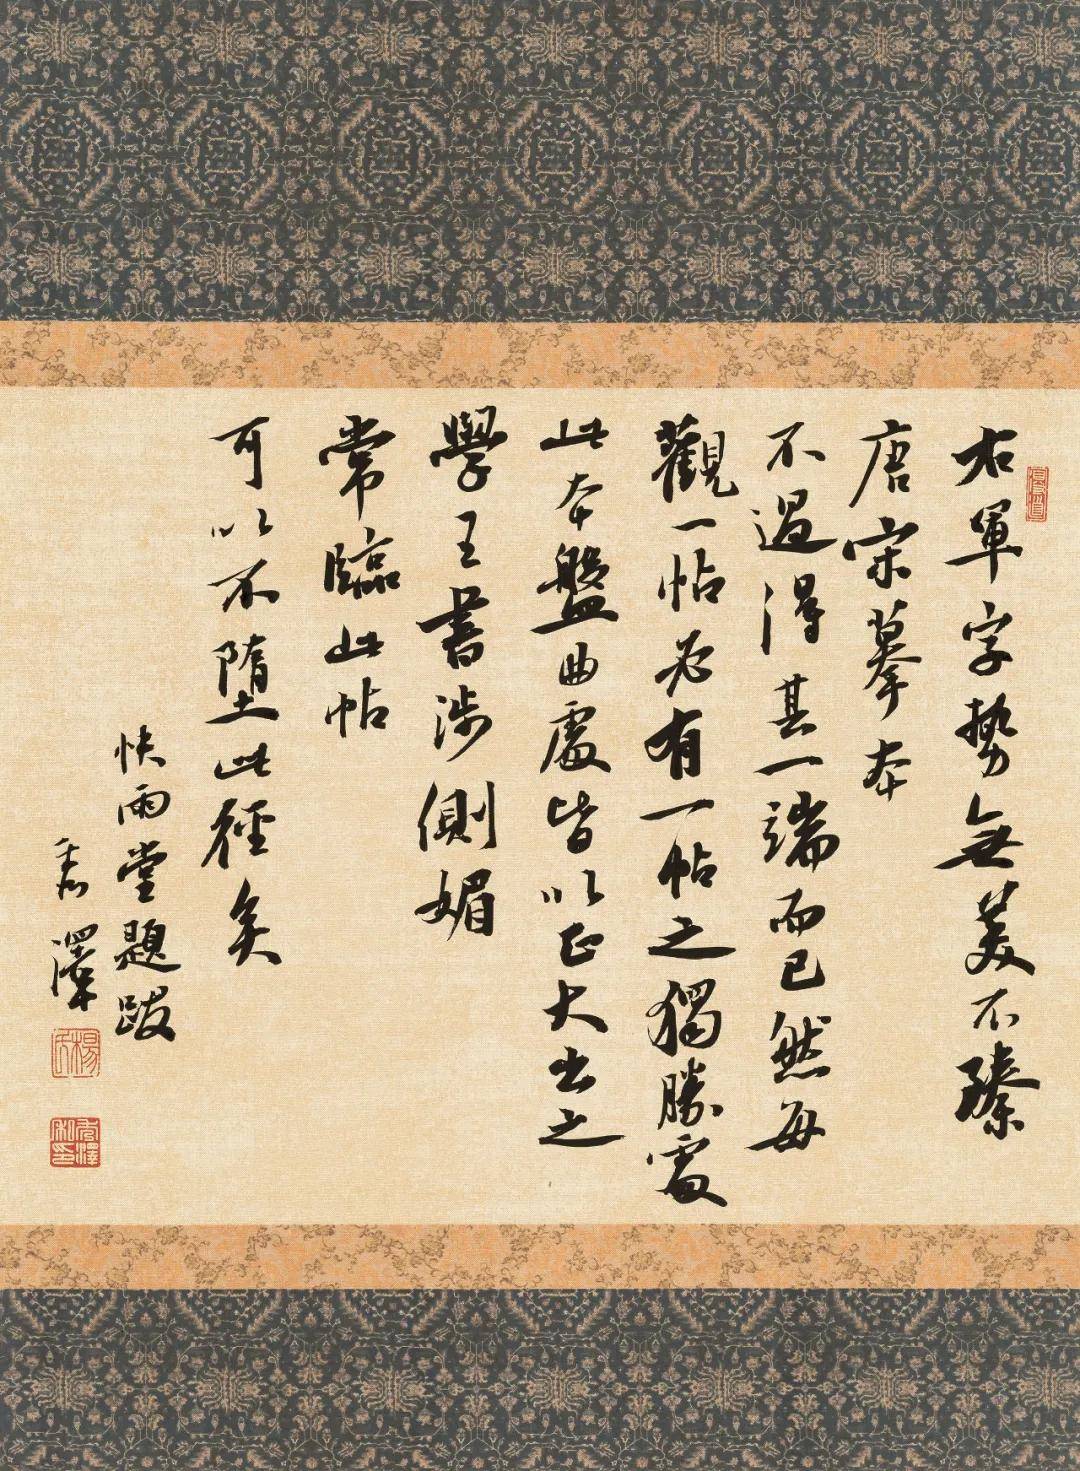 右軍字勢無美不臻
唐宋摹本
不過得其一端而已然每
觀一帖必有一帖之獨勝處
此本盤曲處皆以正大出之
學王書涉側媚
常臨此帖
可以不墮此徑矣
快雨堂題跋
秀澤
楊氏